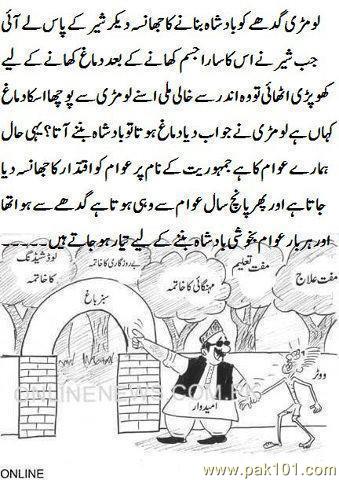 لومڑی گدھے کو بادشاہ بنانے کا جھانسہ دیکر شیر کے پاس لے آئی
جب شیر نے اس کا سارا جسم کھانے کے بعد دماغ کھانے کے لیے
کھوپڑی اٹھائی تو وہ اندر سے خالی ملی اسنے لومڑی سے پوچھا اسکا دماغ
کہاں ہے لومڑی نے جواب دیا دماغ ہوتا تو بادشاہ بننے آتا؟ یہی حال
ہمارے عوام کا ہے جمہوریت کے نام پر عوام کو اقتدار کا جھانسہ دیا
جاتا ہے اور پھر پانچ سال عوام سے وہی ہوتا ہے گدھے سے ہوا تھا
اور ہر بار عوام بخوشی بادشاہ بننے کے لیے تیار ہو جاتے ہیں۔۔۔۔۔
لوڈشیڈنگ کا خاتمہ
بے روزگاری کا خاتمہ
مہنگائی کا خاتمہ
مفت تعلیم
مفت علاج
سبز باغ
امیدوار
ووٹر
ONLINENEWS.COM.PK
ONLINE
www.pak101.com